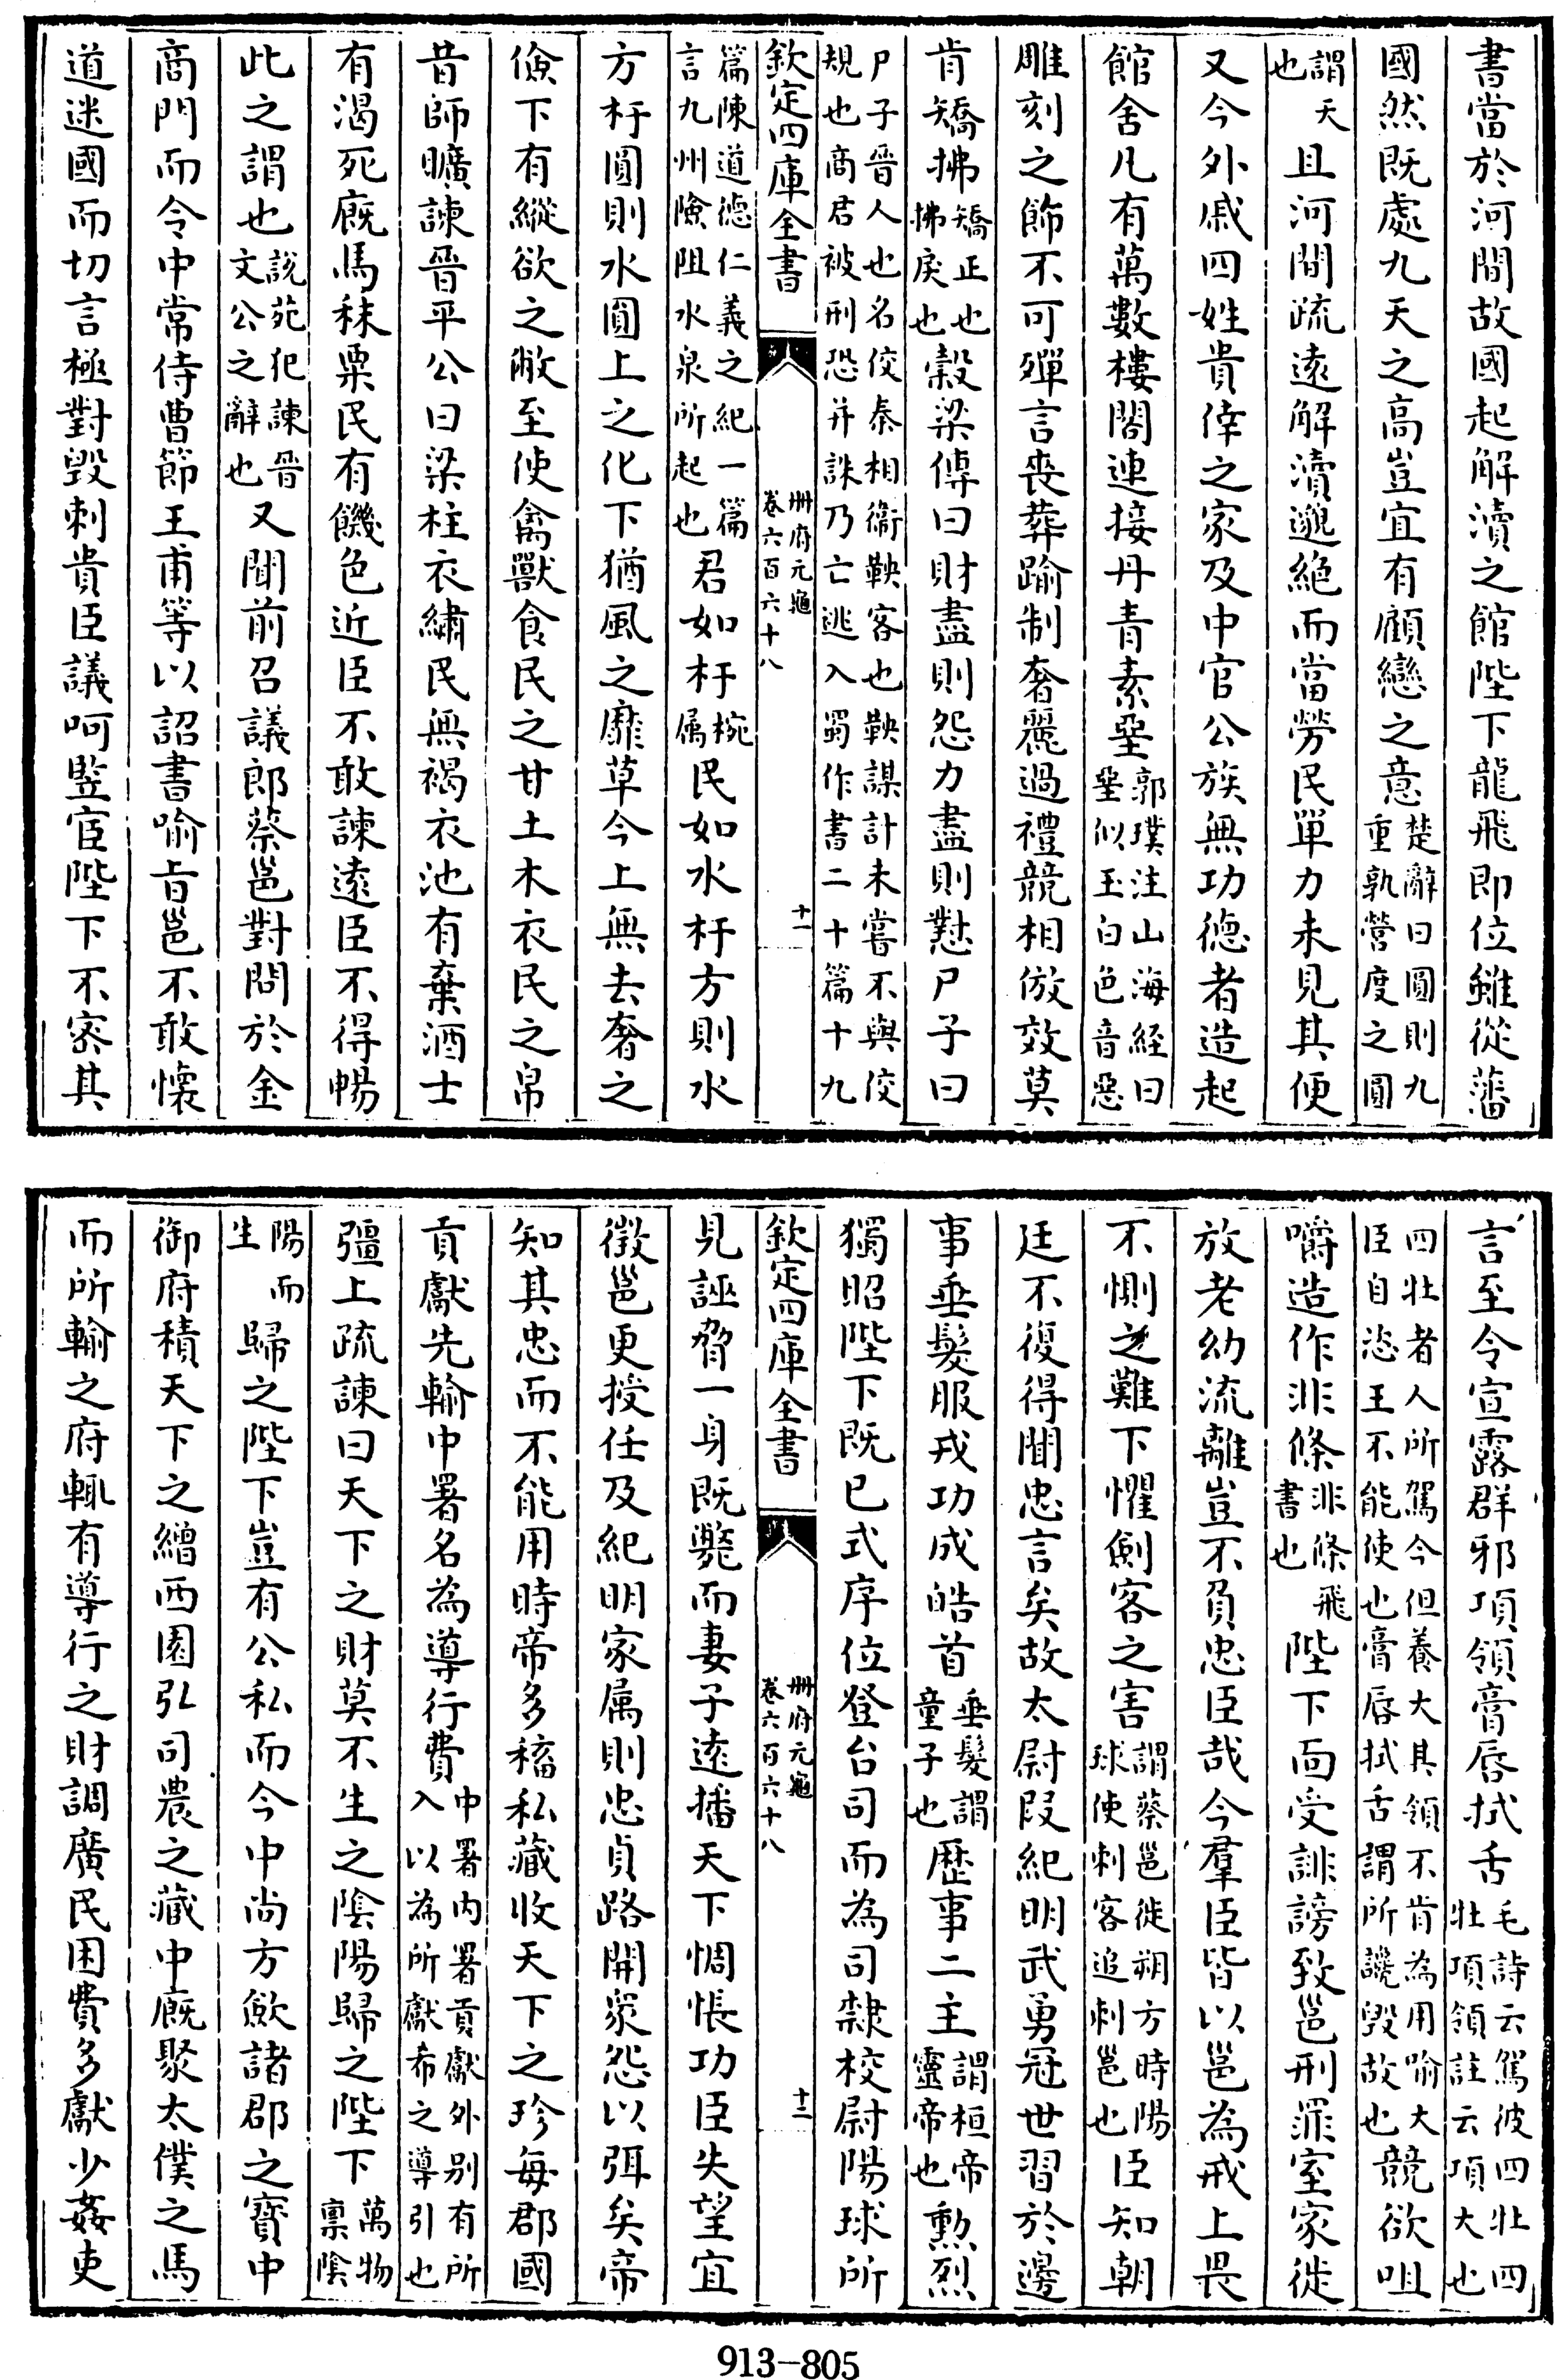 書當於河間故國起解瀆之館陛下龍飛即位雖從藩
國然既處九天之高豈宜有顧戀之意楚辭曰圓則九重孰營度之圓
謂天也且河間疏遠解瀆邈絕而當勞民單力未見其便
又今外戚四姓貴倖之家及中官公族無功德者造起
館舍凡有萬數樓閣連接丹青素堊郭璞注山海經曰堊似玉白色音惡
雕刻之飾不可殫言喪葬踰制奢麗過禮競相倣效莫
肯矯拂矯正也拂戾也穀梁傳曰財盡則怨力盡則懟尸子曰
尸子晉人也名佼秦相衞鞅客也鞅謀計未嘗不與佼規也商君被刑恐并誅乃亡逃入蜀作書二十篇十九
欽定四庫全書 冊府元龜卷六百六十八 十一
篇陳道德仁義之紀一篇言九州險阻水泉所起也君如杅椀属民如水杅方則水
方杅圓則水圓上之化下猶風之靡草今上無去奢之
儉下有縱欲之敝至使禽獸食民之甘土木衣民之帛
昔師曠諫晉平公曰梁柱衣繡民無褐衣池有棄酒士
有渴死廐馬秣粟民有饑色近臣不敢諫遠臣不得暢
此之謂也說苑犯諫晉文公之辭也又聞前召議郎蔡邕對問於金
商門而令中常侍曹節王甫等以詔書喻旨邕不敢懷
道迷國而切言極對毀刺貴臣議呵竪宦陛下不宻其
言至令宣露群邪項領膏唇拭舌毛詩云駕彼四牡四牡項領註云項大也
四牡者人所駕今但養大其領不肯為用喻大臣自恣王不能使也膏唇拭舌謂所譏毀故也競欲咀
嚼造作非條非條飛書也陛下面受誹謗致邕刑罪室家徙
放老幼流離豈不負忠臣哉今羣臣皆以邕為戒上畏
不惻之難下懼劍客之害謂蔡邕徙朔方時陽球使刺客追刺邕也臣知朝
廷不復得聞忠言矣故太尉叚紀明武勇冠世習於邊
事垂髮服戎功成皓首垂髮謂童子也歷事二主謂桓帝靈帝也勲烈
獨昭陛下既已式序位登台司而為司隸校尉陽球所
欽定四庫全書 冊府元龜卷六百六十八 十二
見誣脅一身既斃而妻子遠播天下惆悵功臣失望宜
徴邕更授任及紀明家属則忠貞路開衆怨以弭矣帝
知其忠而不能用時帝多稸私藏收天下之珍每郡國
貢獻先輸中署名為導行費中署内署貢獻外别有所入以為所獻希之導引也
彊上疏諫曰天下之財莫不生之陰陽歸之陛下萬物禀陰
陽而生歸之陛下豈有公私而今中尚方斂諸郡之寳中
御府積天下之繒西園引司農之藏中廐聚太僕之馬
而所輸之府輒有導行之財調廣民困費多獻少姦吏
913-805